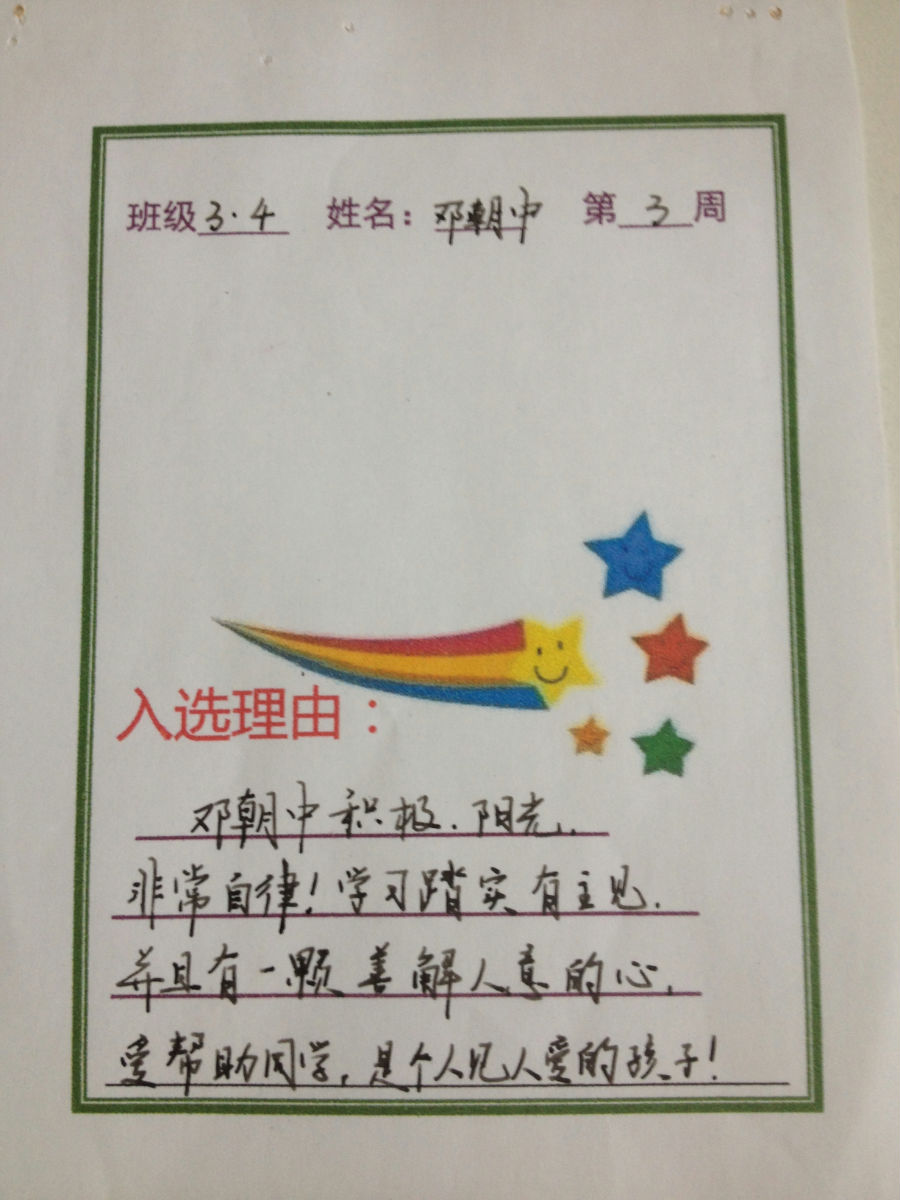 班级3.4 姓名：邓朝中 第3周
入选理由：
邓朝中积极、阳光、
非常自律！学习踏实有主见、
并且有一颗善解人意的心，
爱帮助同学，是个人见人爱的孩子！